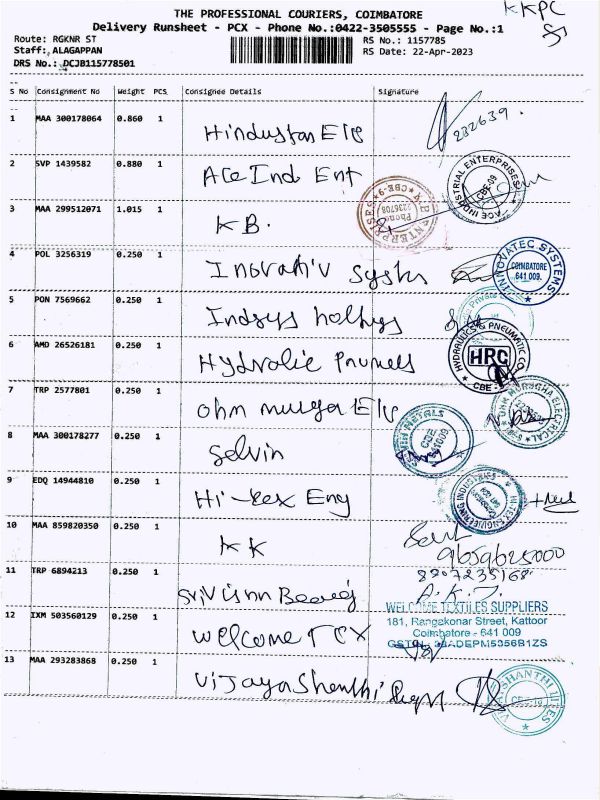 KKPC
THE PROFESSIONAL COURIERS, COIMBATORE
Delivery Runsheet - PCX - Phone No.:0422-3505555 - Page No.:1
Route: RGKNR ST
RS No.: 1157785
Staff: ALAGAPPAN
RS Date: 22-Apr-2023
DRS No.: DCJB115778501
S No Consignment No Weight PCS Consignee Details Signature
1 MAA 300178064 0.860 1 Hindustan Ele 232639
2 SVP 1439582 0.880 1 Ace Ind Ent
ACE INDUSTRIAL ENTERPRISES CBE-09
3 MAA 299512071 1.015 1 KB.
K B ENTERPRISES Phone 2236708 CBE-9
4 POL 3256319 0.250 1 Inovativ System
INNOVATEC SYSTEMS COIMBATORE 641 009.
5 PON 7569662 0.250 1 Indsys holdings
6 AMD 26526181 0.250 1 Hydralic Pnumets
HYDRAULICS & PNEUMATIC CO HRC CBE
7 TRP 2577801 0.250 1 Ohm muruga Ele
OHM MURUGHA ELECTRICAL
8 MAA 300178277 0.250 1 Selvin
METALS CBE 641009
9 EDQ 14944810 0.250 1 Hi-tex Eng
HI-TEX ENGINEERING INDUSTRIES
10 MAA 859820350 0.250 1 KK
9659625000
11 TRP 6894213 0.250 1 Sri Vishnu Bearing
8207235168
A.K.J.
12 IXM 503560129 0.250 1 Welcome TEX
WELCOME TEXTILES SUPPLIERS
181, Rangakonar Street, Kattoor
Coimbatore - 641 009
GSTN: 33ADEPM5356B1ZS
13 MAA 293283868 0.250 1 Vijaya Shanthi